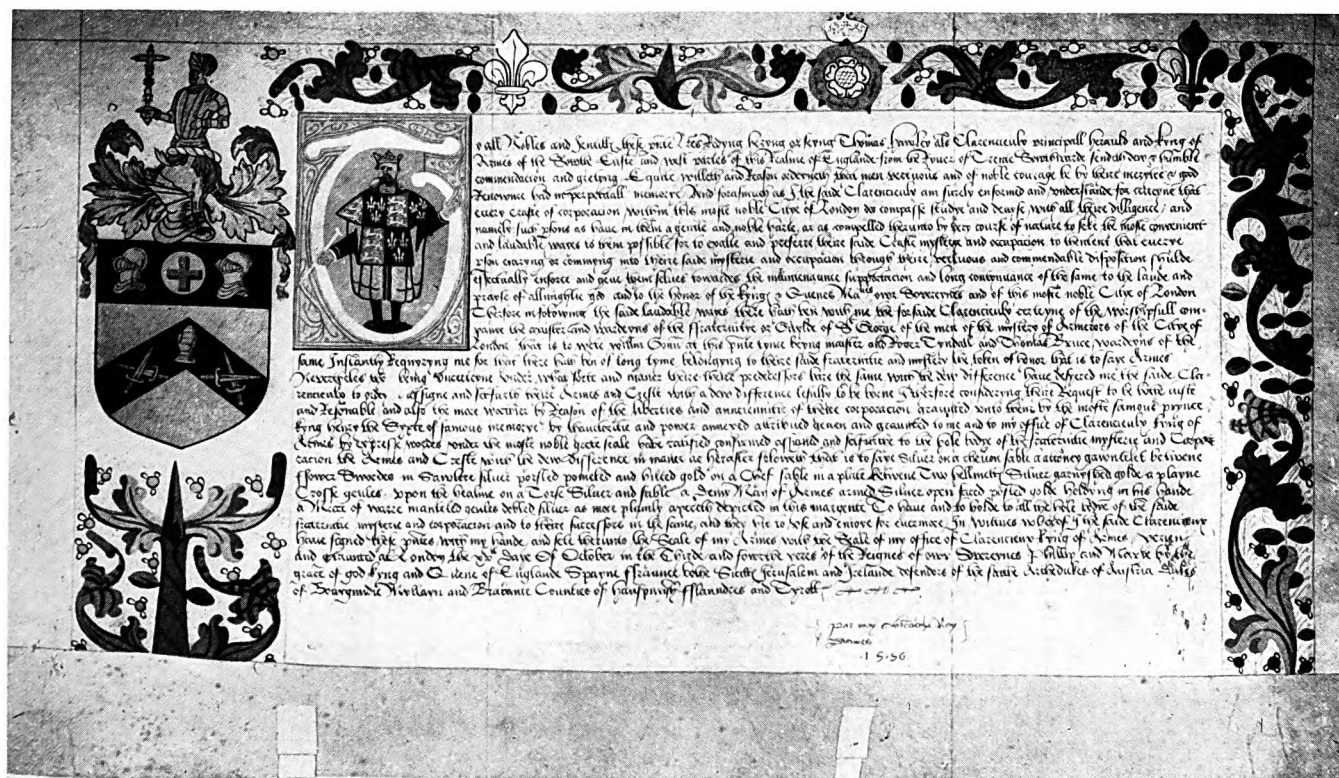 o all Nobles and Gentills these pnte Lres Redyng heryng or seyng Thomas Hawley als Clarencieulx principall herauld and kyng of
Armes of the Sowthe Easte and west parties of this Realme of Englande from the Ryver of Trente Sowthwarde sendith dew & humble
commendation and gretyng Equite willeth and Reason ordeineth that men vertuous and of noble courage be by theire merytes & good
Renowne had in perpetuall memorye And forasmuch as I the saide Clarencieulx am surely enformed and understande for certeyne that
every Crafte of corporacion within this moste noble Citye of London do compasse studye and devyse with all theire dilligence / and
namely such psons as have in them a gentle and noble harte, ar as compelled therunto by very course of nature to seke the moste convenient
and laudable wayes to them possible for to exalte and preferre theire saide Crafte mysterye and occupacion to thentent that everye
pson entryng or commyng into theire saide mysterie and occupacion through theire vertuous and commendable disposition shulde
effectually enforce and geve them selves towardes the maintenaunce supportacion and long continuance of the same to the laude and
prayse of allmightie god and to the honor of the kyngs & Quenes Maties owre Sovereynes and of this moste noble Citye of London
Therfore in folowyng the saide laudable wayes there hath ben with me the forsaide Clarencieulx certeyne of the Worshipfull com-
panie the master and wardeyns of the ffraternitye or Guylde of St George of the men of the mysterye of Armorors of the Citye of
London that is to wete willm Gunn at this pnte tyme beyng master and Roger Tyndall and Thomas Bruce wardeyns of the
same Instantly Requyryng me for that there hath ben of long tyme belongyng to theire saide fraternitie and mystery the token of honor that is to saye Armes
Neverteles the being uncerteyne under what sorte and maner theire predecessors bare the same with the dew difference have desyred me the saide Cla-
rencieulx to order assigne and sett furth theire Armes and Creste with a dew difference lefully to be borne Wherfore consideryng theire Request to be bothe juste
and Resonable and also the more worthier by Reason of the liberties and auncienntie of theire corporacion graunted unto them by the moste famous prynce
kyng henry the Syxte of famous memorye by thauctoritie and power annexed attributed geven and graunted to me and to my office of Clarencieulx kyng of
Armes by expresse wordes under the moste noble greate seale have ratified confirmed assigned and sett furth to the hole bodye of the fraternitie mysterie and Corpo-
racion the Armes and Creste with the dew difference in maner as heraster foloweth that is to saye Silver on a cheveron sable a gawntelet betwene
ffower Swordes in Sawltere silver porfled pomeled and hilted gold on a Chef sable in a plate betwene Two hellmetts Silver garnyshed golde a playne
Crosse geules upon the healme on a Torse Silver and sable a Demy Man of Armes armed Silver open faced pofled golde holdyng in his hande
a Mace of warre manteled geules dobled silver as more plainly aperith depicted in this margente To have and to holde to all the hole bodye of the saide
fraternitie mysterie and corporacion and to theire successors in the same, and they yt to use and enioye for evermore In witnes wherof I the saide Clarencieux
have signed these pntes with my hande and sett therunto the Seale of my Armes with the Seale of my office of Clarencieux kyng of Armes yeven
and graunted at London the Daye Of October in the Thirde and fowerth yeres of the Reignes of owr Sovereynes Phillip and Marye by the
grace of god kyng and Quene of Englande Spayne ffraunce bothe Sicills Jerusalem and Irelande defendors of the faithe Archedukes of Austria Dukes
of Bourgundie Myllayn and Brabante Counties of Hauspurgh fflaunders and Tyroll
par moy Roy
Darmes
1556